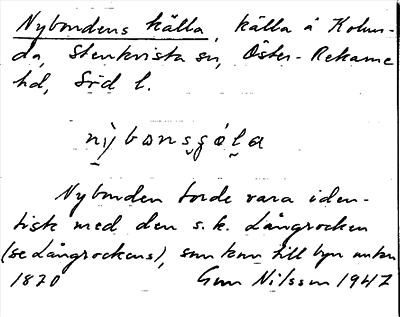 Nybondens källa, källa å Kolun-
da, Stenkvista sn, Öster-Rekarne
hd, Söd l.
nỳbɷnsʂɡóḷa
Nybonden torde vara iden-
tisk med den s.k. Långrocken
(se Långrockens), som kom till byn
1820 Gun Nilsson 1947